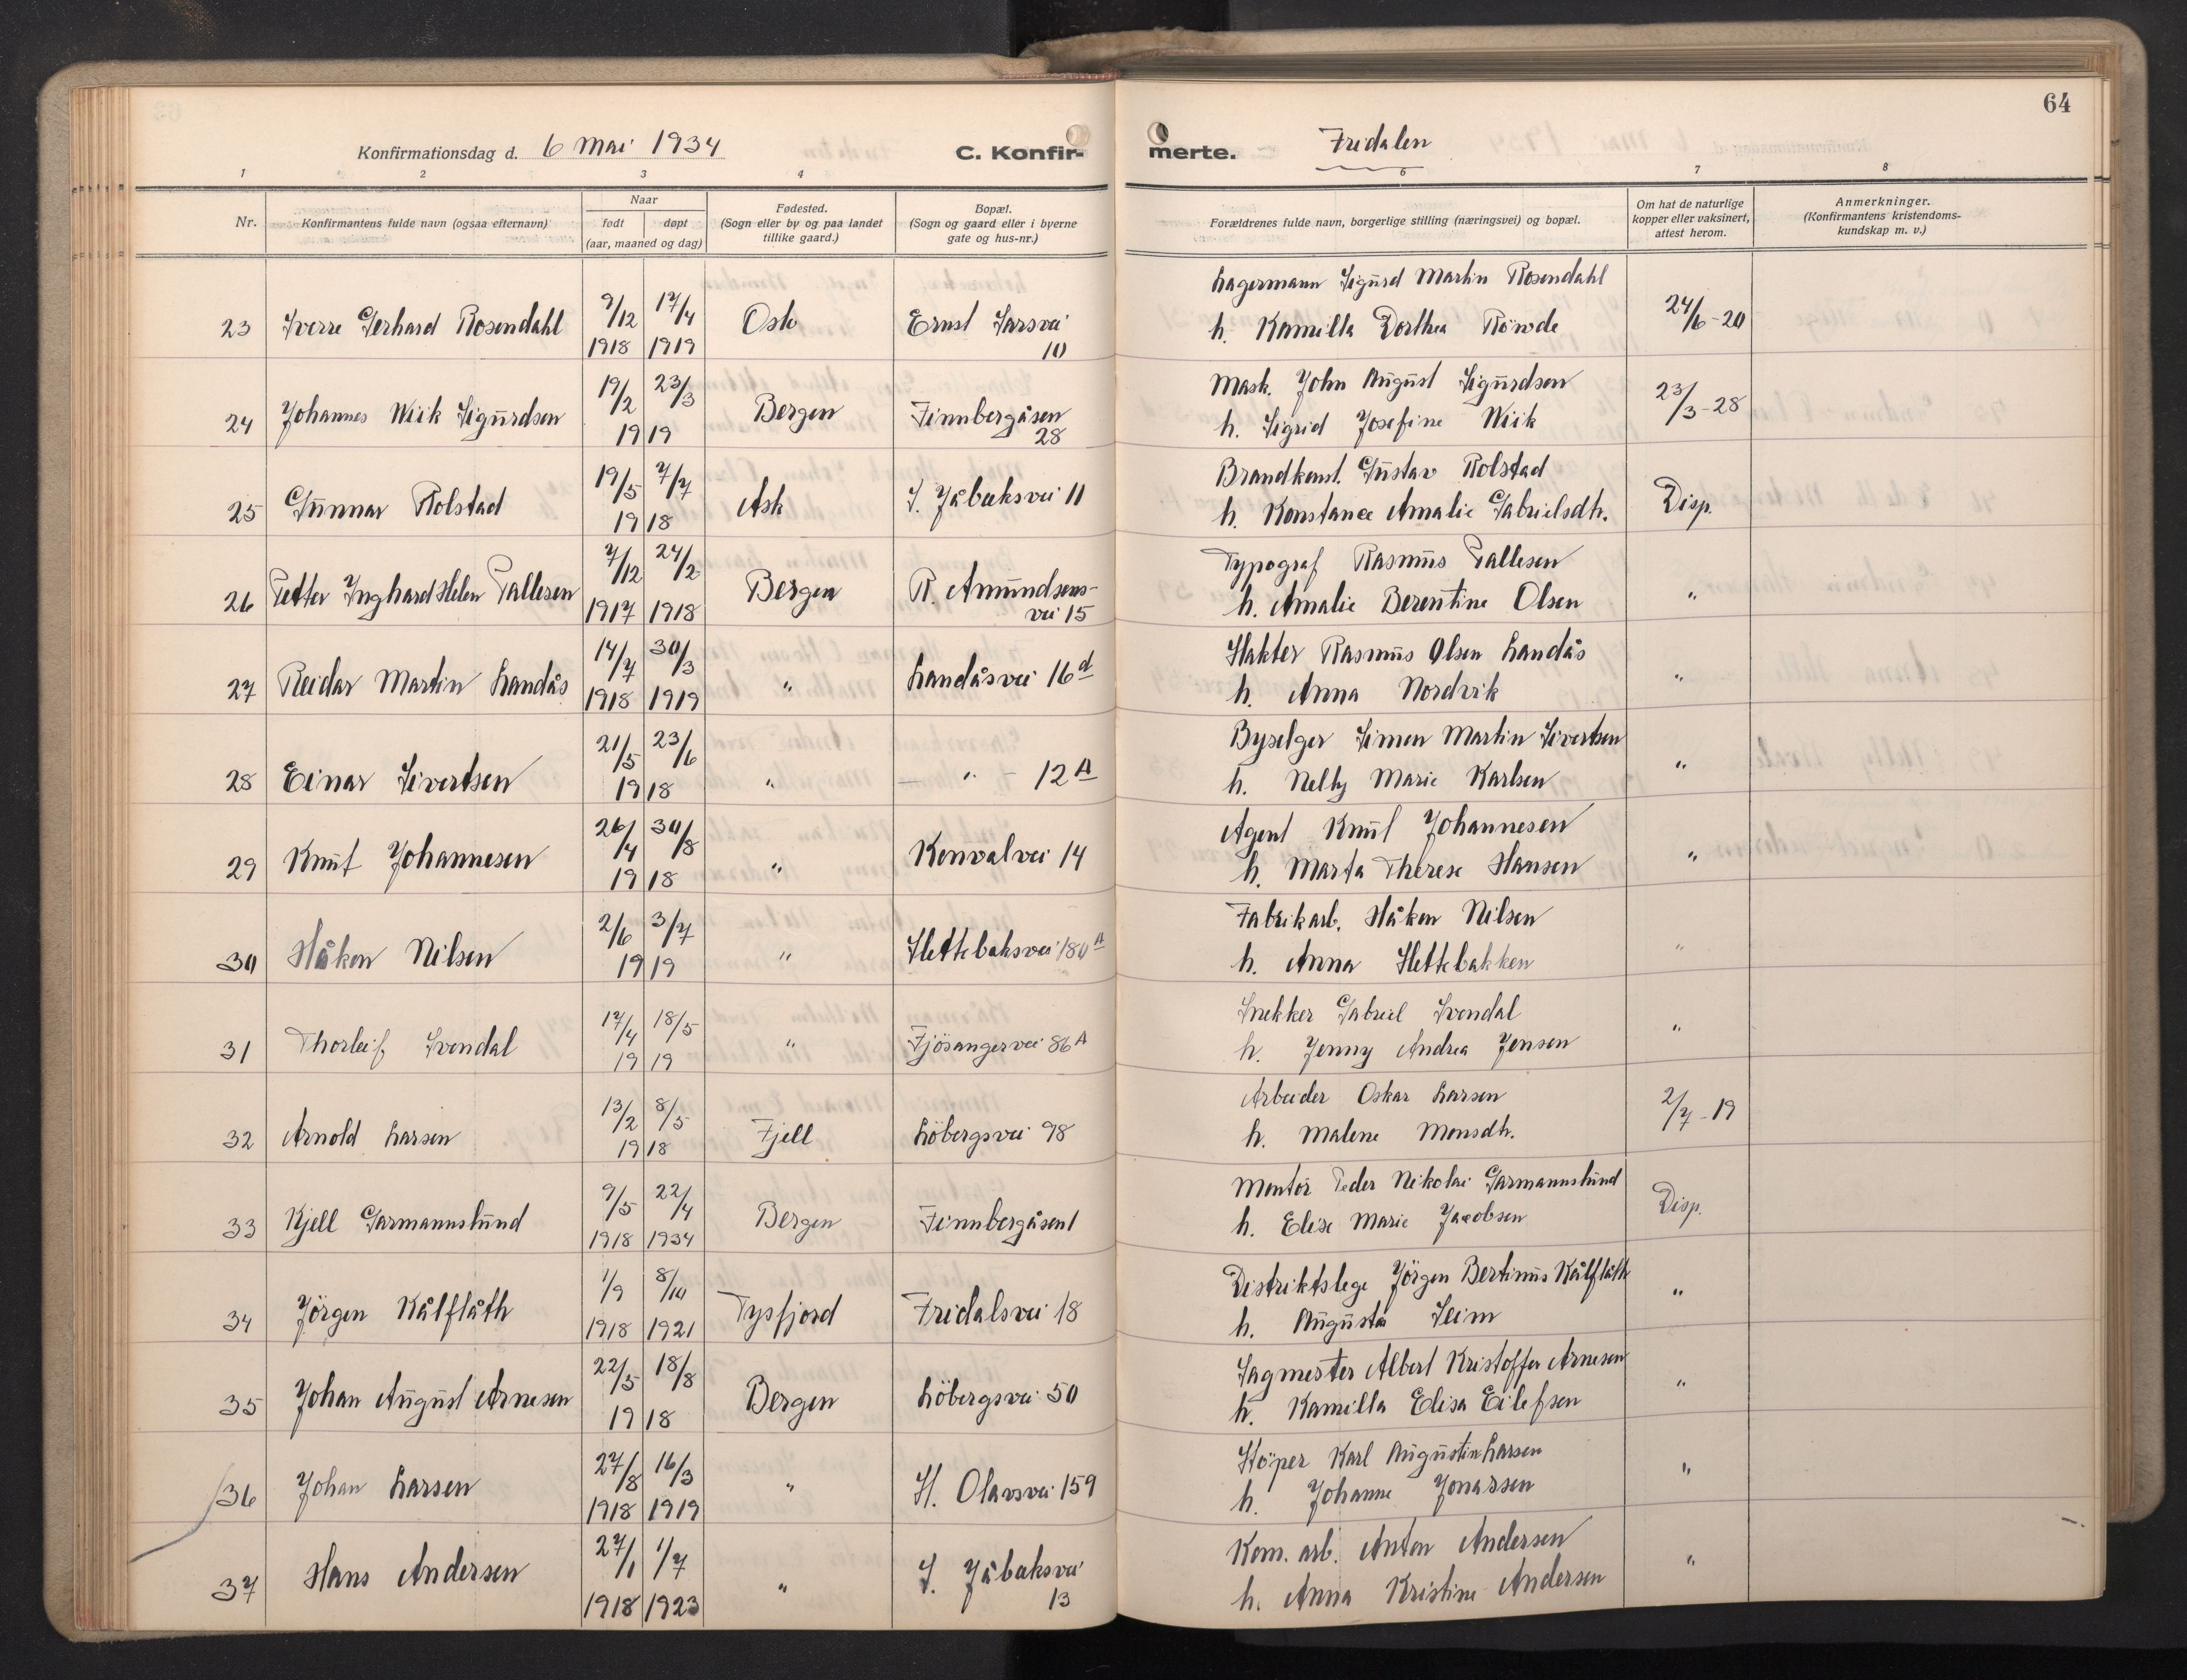 64
Konfirmationsdag d. 6 mai 1934 C. Konfirmerte. Fridalen
1 2 3 4 6 7 8
Nr. Konfirmantens fulde navn (ogsaa efternavn) Naar født døpt (aar, maaned og dag) Fødested. (Sogn eller by og paa landet tillike gaard.) Bopæl. (Sogn og gaard eller i byerne gate og hus-nr.) Forældrenes fulde navn, borgerlige stilling (næringsvei) og bopæl. Om hat de naturlige kopper eller vaksinert, attest herom. Anmerkninger. (Konfirmantens kristendoms-kundskap m. v.)
23 Sverre Gerhard Rosendahl 9/12 1918 17/4 1919 Oslo Ernst Sarsvei 10 Lagermann Sigurd Martin Rosendahl
h. Kamilla Dorthea 24/6-20
24 Johannes Wiik Sigurdsen 19/2 23/3 1919 Bergen Finnbergåsen 28 Mask. John August Sigurdsen
h. Sigrid Josefine Wiik 23/3-28
25 Gunnar Rolstad 19/5 7/7 1918 Ask J. Jåbæksvei 11 Brandkonst. Gustav Rolstad
h. Konstance Amalie Gabrielsdtr. Disp.
26 Petter Inghard Helen Pallesen 7/12 1917 24/2 1918 Bergen R. Amundsens-vei 15 Typograf Rasmus Pallesen
h. Amalie Berentine Olsen "
27 Reidar Martin Landås 14/7 1918 30/3 1919 " Landåsvei 16d Slakter Rasmus Olsen Landås
h. Anna Nordvik "
28 Einar Sivertsen 21/5 23/6 1918 " — " — 12A Byselger Simon Martin Sivertsen
h. Nelly Marie Karlsen "
29 Knut Johannesen 26/4 30/8 1918 " Konvalvei 14 Agent Knut Johannesen
h. Marta Therese Hansen "
30 Håkon Nilsen 2/6 3/7 1919 " Slettebaksvei 180A Fabrikarb. Håkon Nilsen
h. Anna Slettebakken "
31 Thorleif Svendal 17/4 18/5 1919 " Fjøsangervei 86A Snekker Gabriel Svendal
h. Jenny Andrea Jensen "
32 Arnold Larsen 13/2 8/5 1918 Fjell Löbergsvei 98 Arbeider Oskar Larsen
h. Malene Monsdtr. 2/7-19
33 Kjell Garmannslund 9/5 1918 22/4 1934 Bergen Finnbergåsen 1 Montör Peder Nikolai Garmannslund
h. Elise Marie Jacobsen Disp.
34 Jörgen Kålflåth 1/9 1918 8/10 1921 Tysfjord Fridalsvei 18 Distriktslege Jörgen Bertinus Kålflåth
h. Augusta Seim "
35 Johan August Arnesen 22/5 18/8 1918 Bergen Löbergsvei 50 Sagmester Albert Kristoffer Arnesen
h. Kamilla Elisa Eilefsen "
36 Johan Larsen 27/8 1918 16/3 1919 " St. Olavsvei 159 Stöper Karl Augustin Larsen
h. Johanne Jonassen "
37 Hans Andersen 27/1 1918 1/7 1923 " J. Jåbæksvei 13 Kom. arb. Anton Andersen
h. Anna Kristine Andersen "